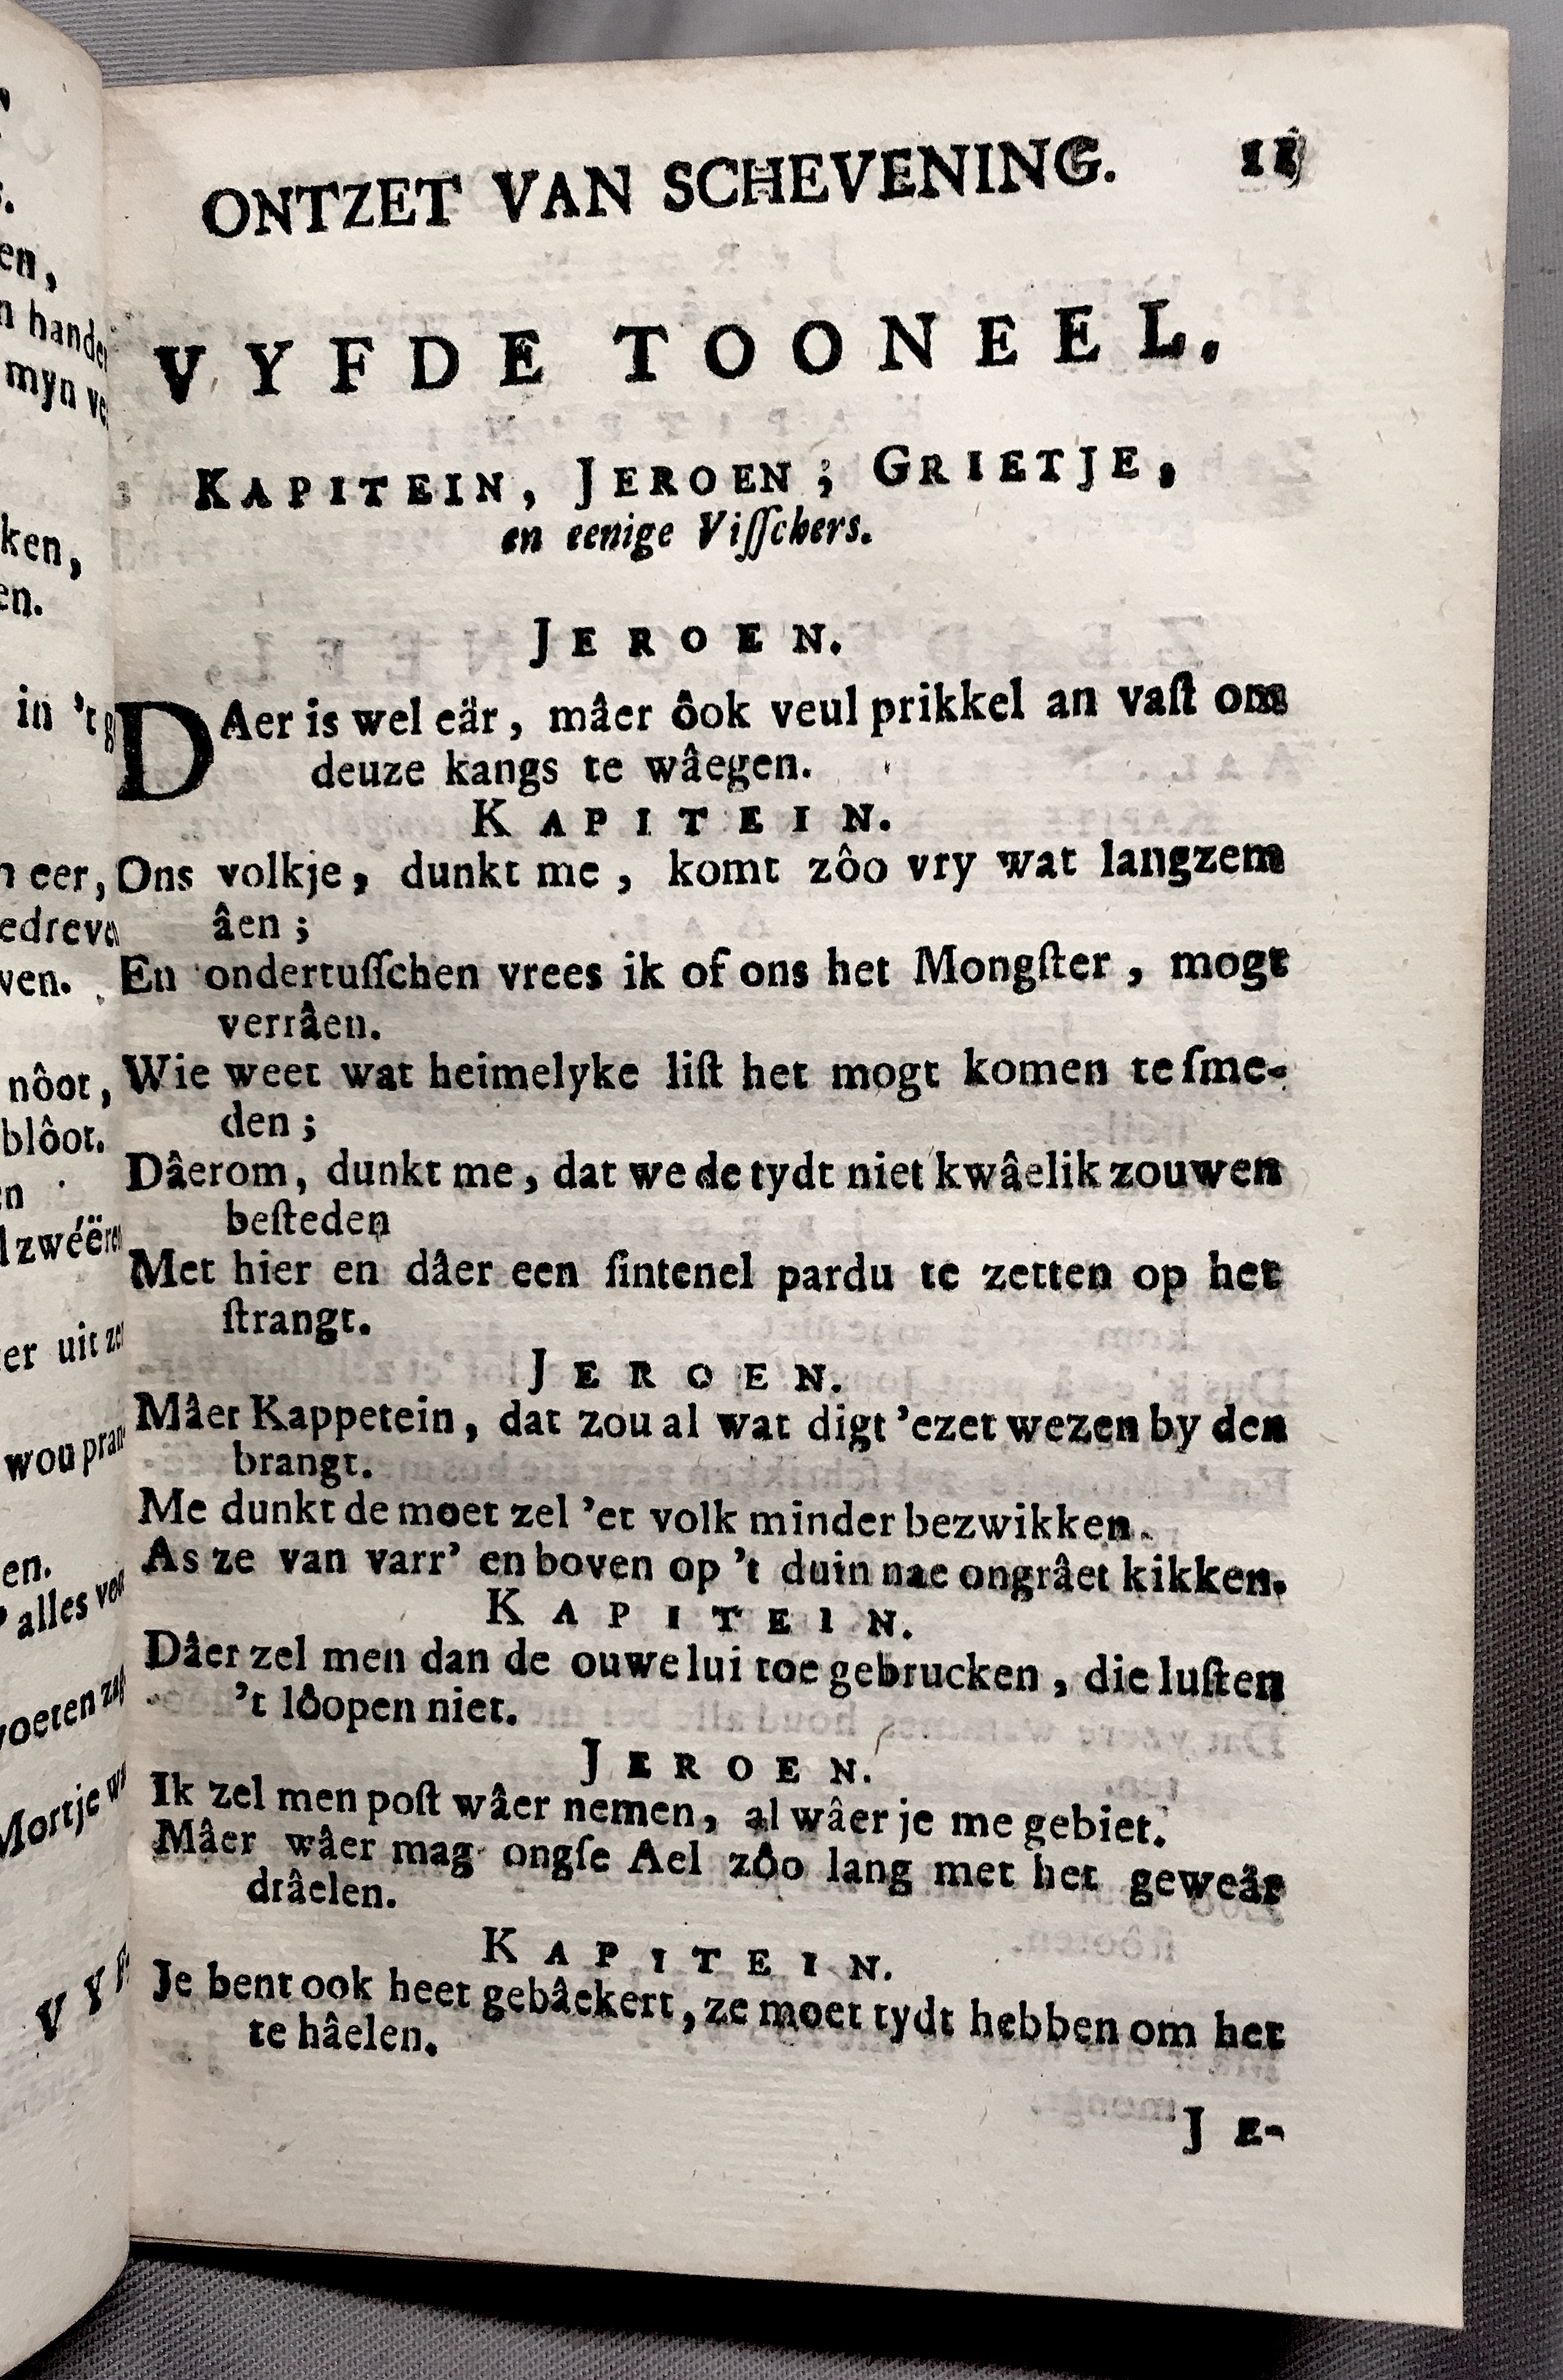 ONTZET VAN SCHEVENING. 11
VYFDE TOONEEL.
KAPITEIN, JEROEN; GRIETJE,
en eenige Viſſchers.
JEROEN.
DAer is wel eär, mâer ôok veul prikkel an vaſt om
deuze kangs te wâegen.
KAPITEIN.
Ons volkje, dunkt me, komt zôo vry wat langzem
âen;
En ondertuſſchen vrees ik of ons het Mongſter, mogt
verrâen.
Wie weet wat heimelyke liſt het mogt komen te ſme-
den;
Dâerom, dunkt me, dat we de tydt niet kwâelik zouwen
beſteden
Met hier en dâer een ſintenel pardu te zetten op het
ſtrangt.
JEROEN.
Mâer Kappetein, dat zou al wat digt 'ezet wezen by den
brangt.
Me dunkt de moet zel 'et volk minder bezwikken.
As ze van varr' en boven op 't duin nae ongrâet kikken.
KAPITEIN.
Dâer zel men dan de ouwe lui toe gebrucken, die luſten
't lôopen niet.
JEROEN.
Ik zel men poſt wâer nemen, al wâer je me gebiet.
Mâer wâer mag ongſe Ael zôo lang met het geweär
drâelen.
KAPITEIN.
Je bent ook heet gebâekert, ze moet tydt hebben om het
te hâelen.
JE-
en,
ken,
en.
in 't
eer,
ven.
nôot,
blôot.
en
er uit
wou
en.
alles
voeten
Mortje